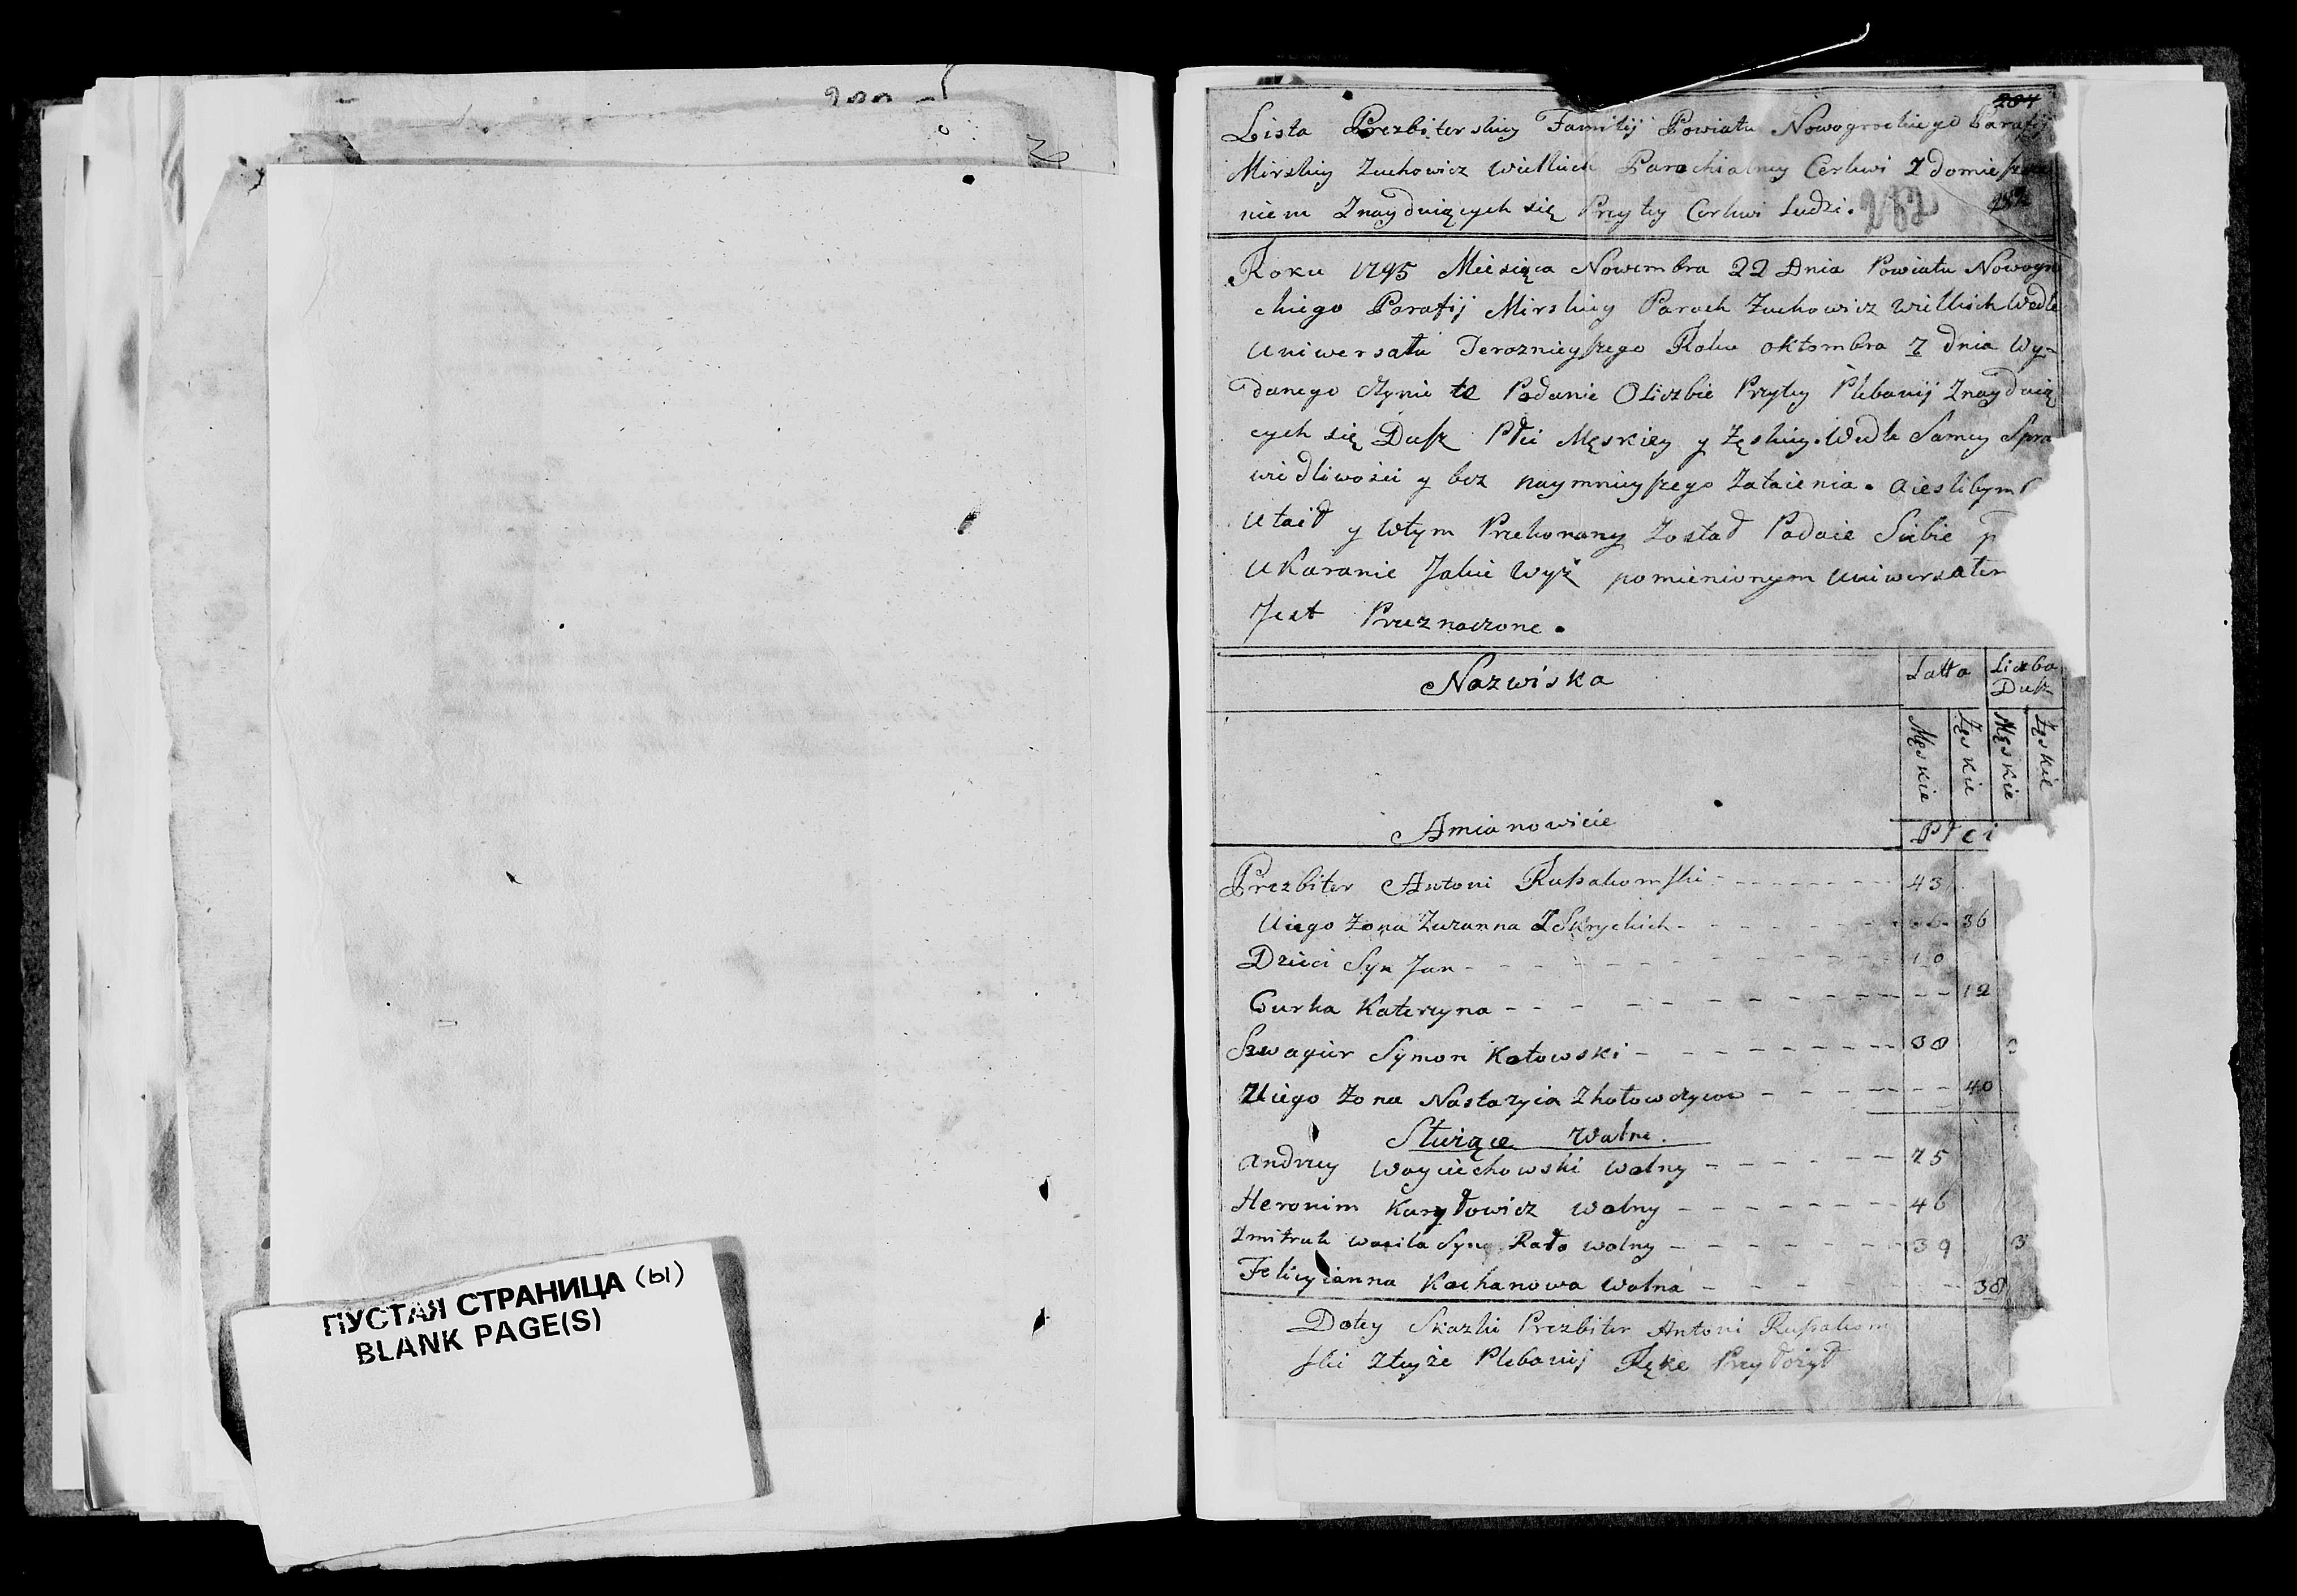 ПУСТАЯ СТРАНИЦА (ы)
BLANK PAGE(S)
204
Lista Prezbiterskiey Familij Powiatu Nowogrockiego Parafij
Mirskiey Zuchowicz Wielkich Parochialney Cerkwi Z domieszcze
niem Znayduiących się Przytey Cerkwi Ludzi.
282
Roku 1795 Miesiąca Nowembra 22 Dnia Powiatu Nowogro
ckiego Parafij Mirskiey Paroch Zuchowicz Wielkich Wedle
Uniwersału Teraznieyszego Roku oktombra 7 dnia Wy-
danego Czynie te Podanie O Liczbie Przytey Plebanij Znayduią
cych się Dusz Płci Męskiey y Zęskiey. Wedle Samey Spra
wiedliwości y bez naymnieyszego Zataienia. a ieslibym
Utaił y wtym Przekonany Został Podaie Siebie
Ukaranie Jakie Wyż pomienionym Uniwersałem
Jest Przeznaczone.
Nazwiska
Latta
Liczba
Dusz
Męskie
Zęskie
Męskie
Zęskie
Amianowicie
Płci
Prezbiter Antoni Russakowski 43
Uiego Zona Zuzanna Z Skryckich 36
Dzieci Syn Jan 10
Curka Katerzyna 12
Szwagier Symon Kotowski 30
Uiego Zona Nastazyia 40
Służące Wolne.
Andrzey Woyciechowski Wolny 25
Heronim Kuryłowicz Wolny 46
Zmitruk Wasila Syn Rało wolny 39 3
Felicyianna Kochanowa Wolna 38
Dotey Skazki Prezbiter Antoni Russakow
ski Zteyże Plebanij Rękę Przyłożył